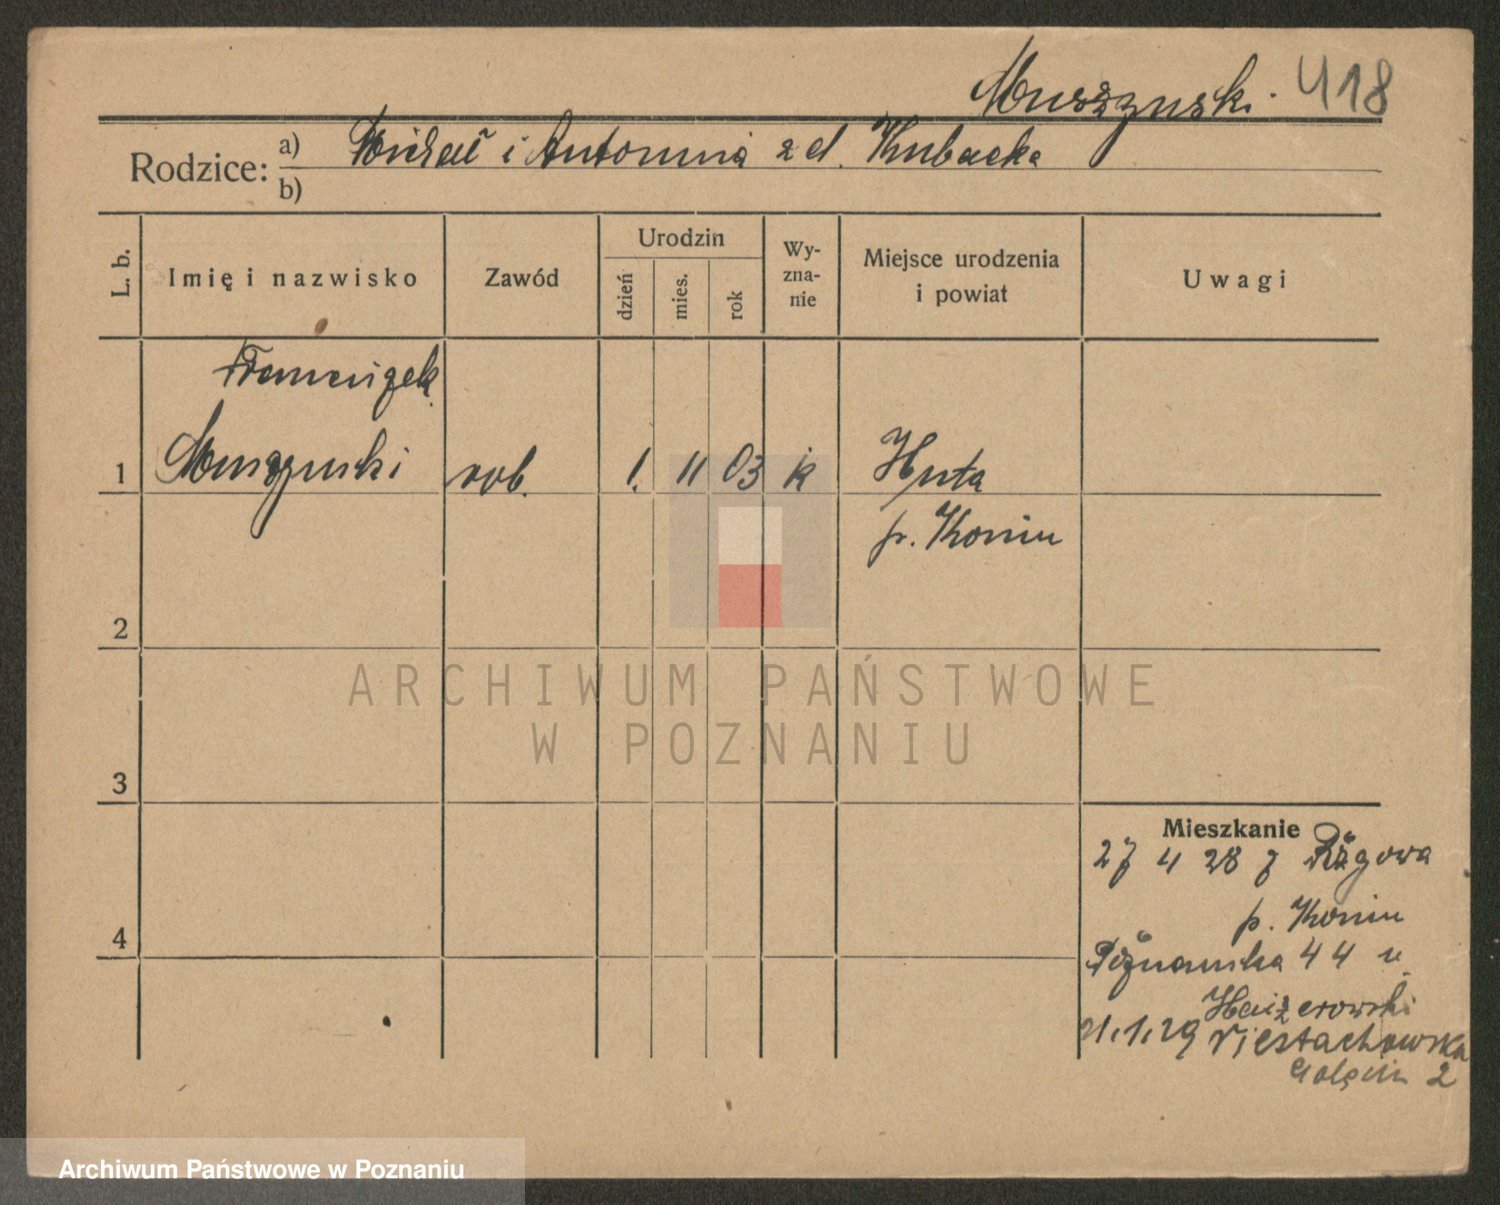 Muszzynski. 418
Rodzice: a) Michał i Antonina z d. Kubacka
b)
L. b. Imię i nazwisko Zawód Urodzin dzień mies. rok Wy-zna-nie Miejsce urodzenia i powiat Uwagi
Franciszek
1 Muszynski rob. 1. 11 03 k Huta
p. Konin
2
3
4
Mieszkanie
27 4 28 z
p. Konin
Poznanska 44 u
21.1.29
Golęcin 2
ARCHIWUM PAŃSTWOWE
W POZNANIU
Archiwum Państwowe w Poznaniu